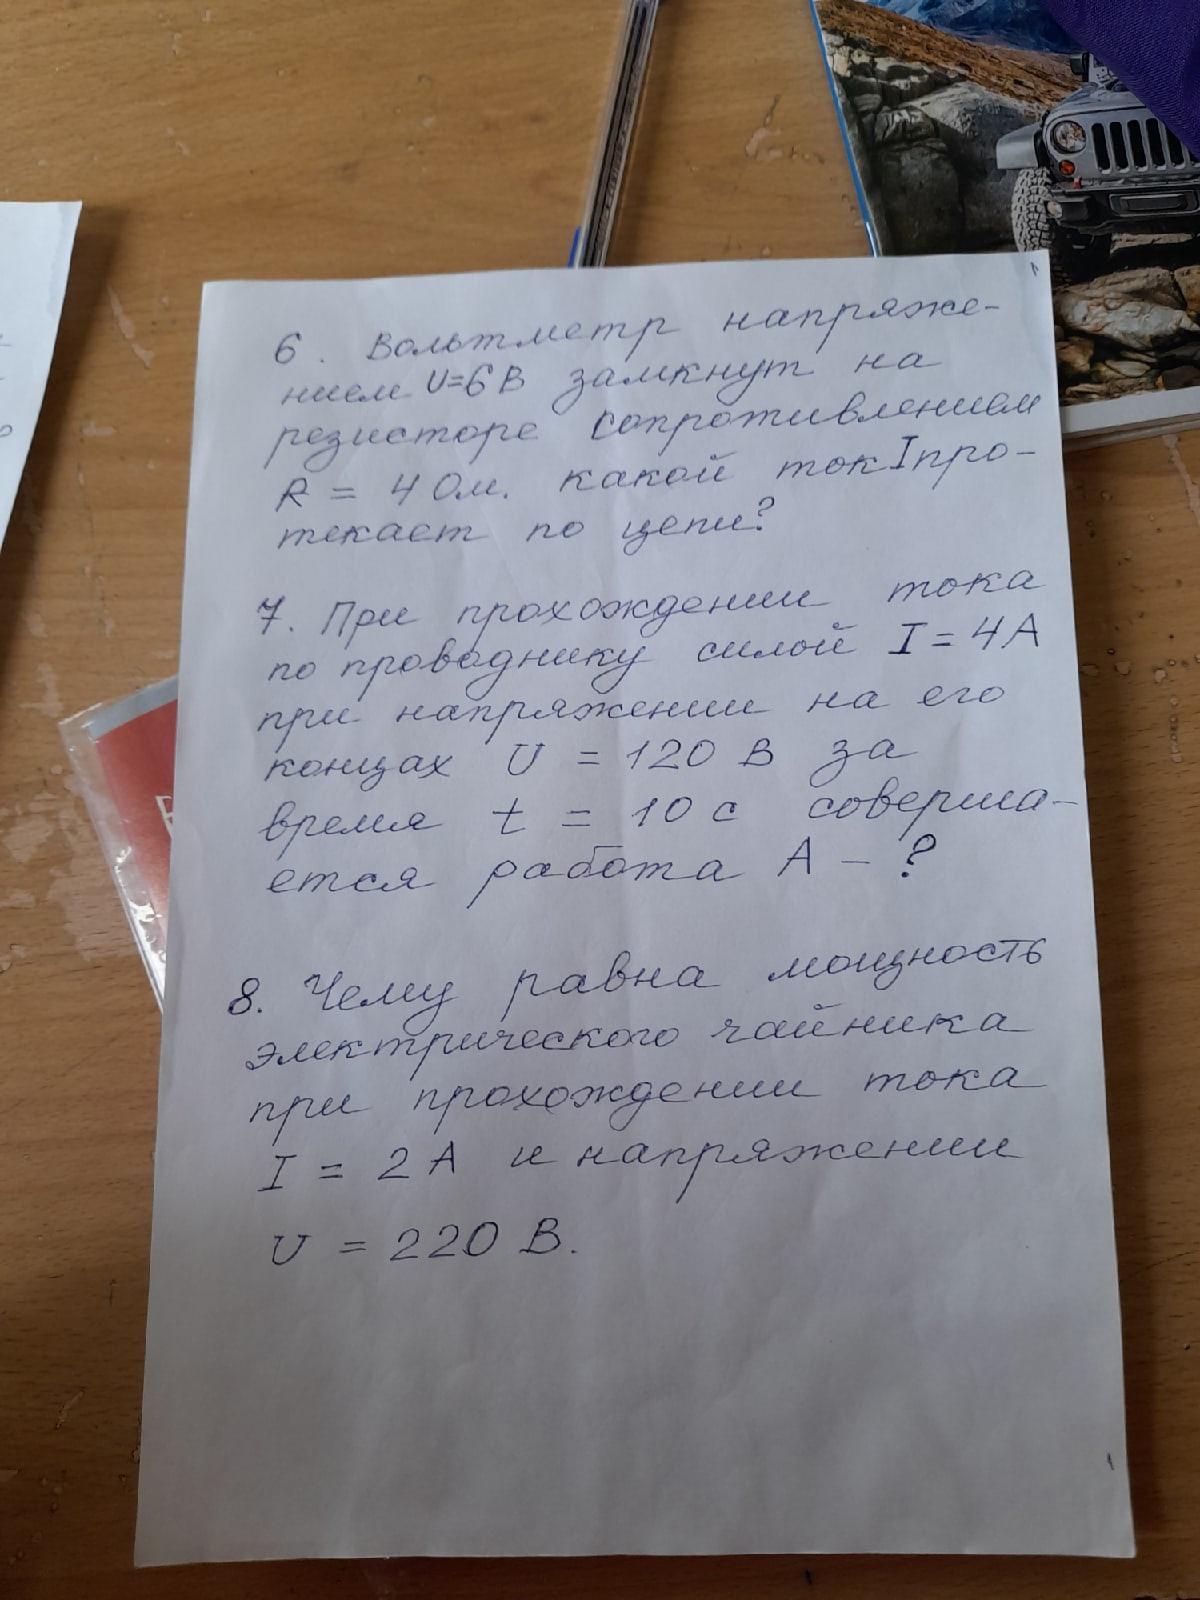 6. Вольтметр напряже-
нием U=6 В замкнут на
резисторе сопротивлением
R = 4 Ом. какой ток I про-
текает по цепи?
7. При прохождении тока
по проводнику силой I = 4 А
при напряжении на его
концах U = 120 В за
время t = 10 с соверша-
ется работа А – ?
8. Чему равна мощность
электрического чайника
при прохождении тока
I = 2 А и напряжении
U = 220 В.